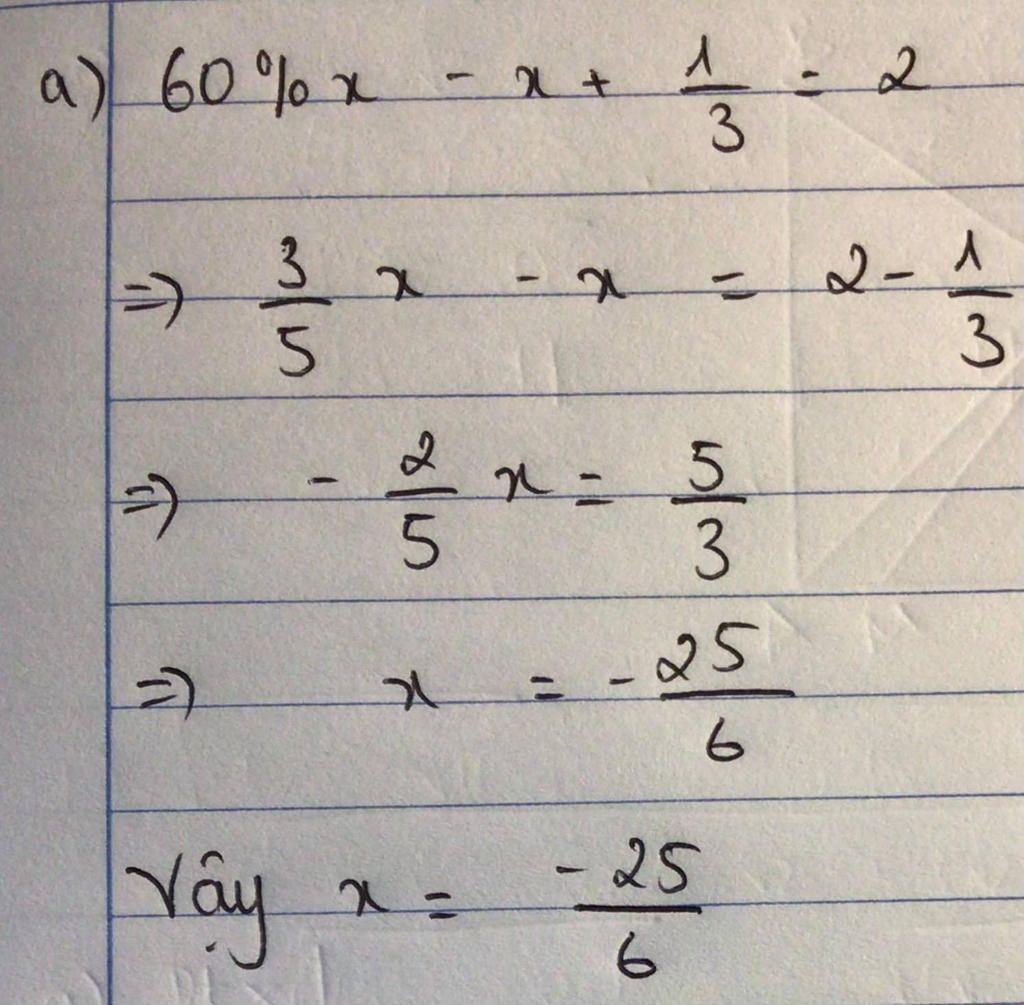 a) 60%x - x + 1/3 = 2
=> 3/5 x - x = 2 - 1/3
=> - 2/5 x = 5/3
=> x = - 25/6
Vậy x = -25/6